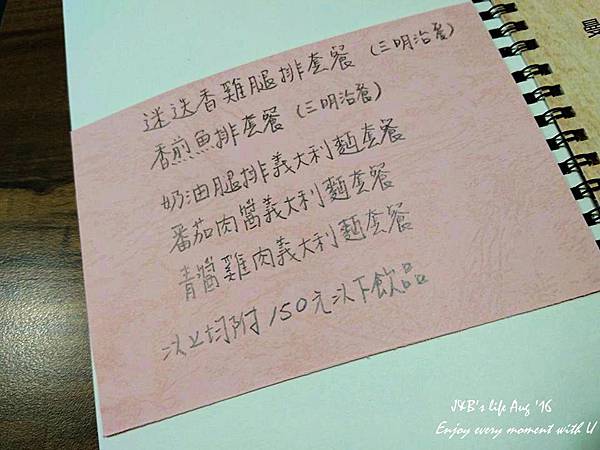 迷迭香雞腿排套餐 (三明治餐)
香煎魚排套餐 (三明治餐)
奶油腿排義大利麵套餐
番茄肉醬義大利麵套餐
青醬雞肉義大利麵套餐
以上均附150元以下飲品
J&B's life Aug '16
Enjoy every moment with U